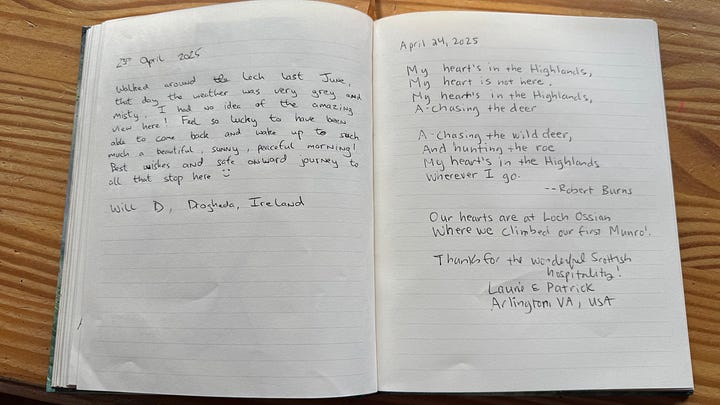 April 2025
Walked around the Loch last June,
that day the weather was very grey and
misty, I had no idea of the amazing
view here! Feel so lucky to have been
able to come back and wake up to such
much a beautiful, sunny, peaceful morning!
Best wishes and safe onward journey to
all that stop here
Will D, Drogheda, Ireland
April 24, 2025
My heart's in the Highlands,
My heart is not here.
My heart's in the Highlands,
A-chasing the deer
A-chasing the wild deer,
And hunting the roe
My heart's in the Highlands
Wherever I go.
--Robert Burns
Our hearts are at Loch Ossian
Where we climbed our first Munro!
Thanks for the wonderful Scottish
hospitality!
Laurie & Patrick
Arlington, VA, USA